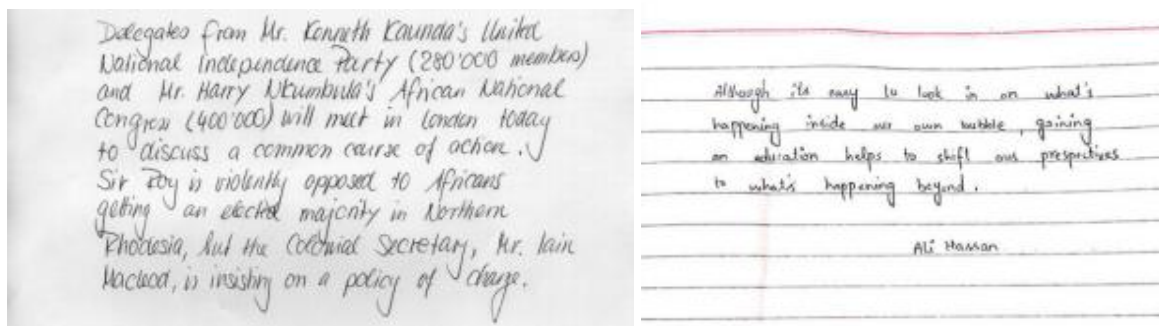 Delegates from Mr. Kenneth Kaunda's United
National Independence Party (280'000 members)
and Mr. Harry Nkumbula's African National
Congress (400'000) will meet in London today
to discuss a common course of action.
Sir Roy is violently opposed to Africans
getting an elected majority in Northern
Rhodesia, but the Colonial Secretary, Mr. Iain
Macleod, is insisting on a policy of change.
Although its easy to look in on what's
happening inside our own bubble, gaining
an education helps to shift our prespectives
to what's happening beyond.
Ali Hassan